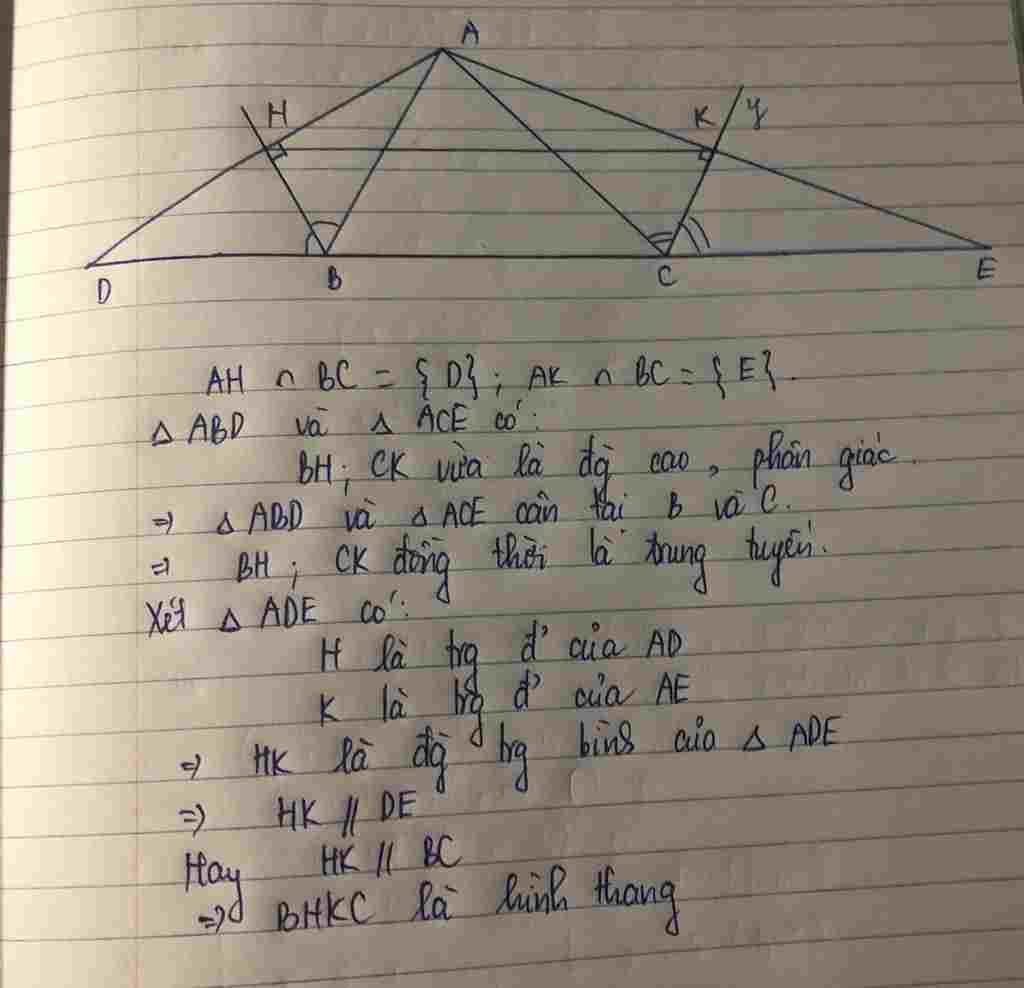 A
H
K y
D
B
C
E
AH ∩ BC = {D}; AK ∩ BC = {E}.
Δ ABD và Δ ACE có:
BH; CK vừa là đg cao, phân giác.
=> Δ ABD và Δ ACE cân tại B và C.
=> BH; CK đồng thời là trung tuyến.
Xét Δ ADE có:
H là trg đ' của AD
K là trg đ' của AE
=> HK là đg trg bình của Δ ADE
=> HK // DE
Hay HK // BC
=> BHKC là hình thang